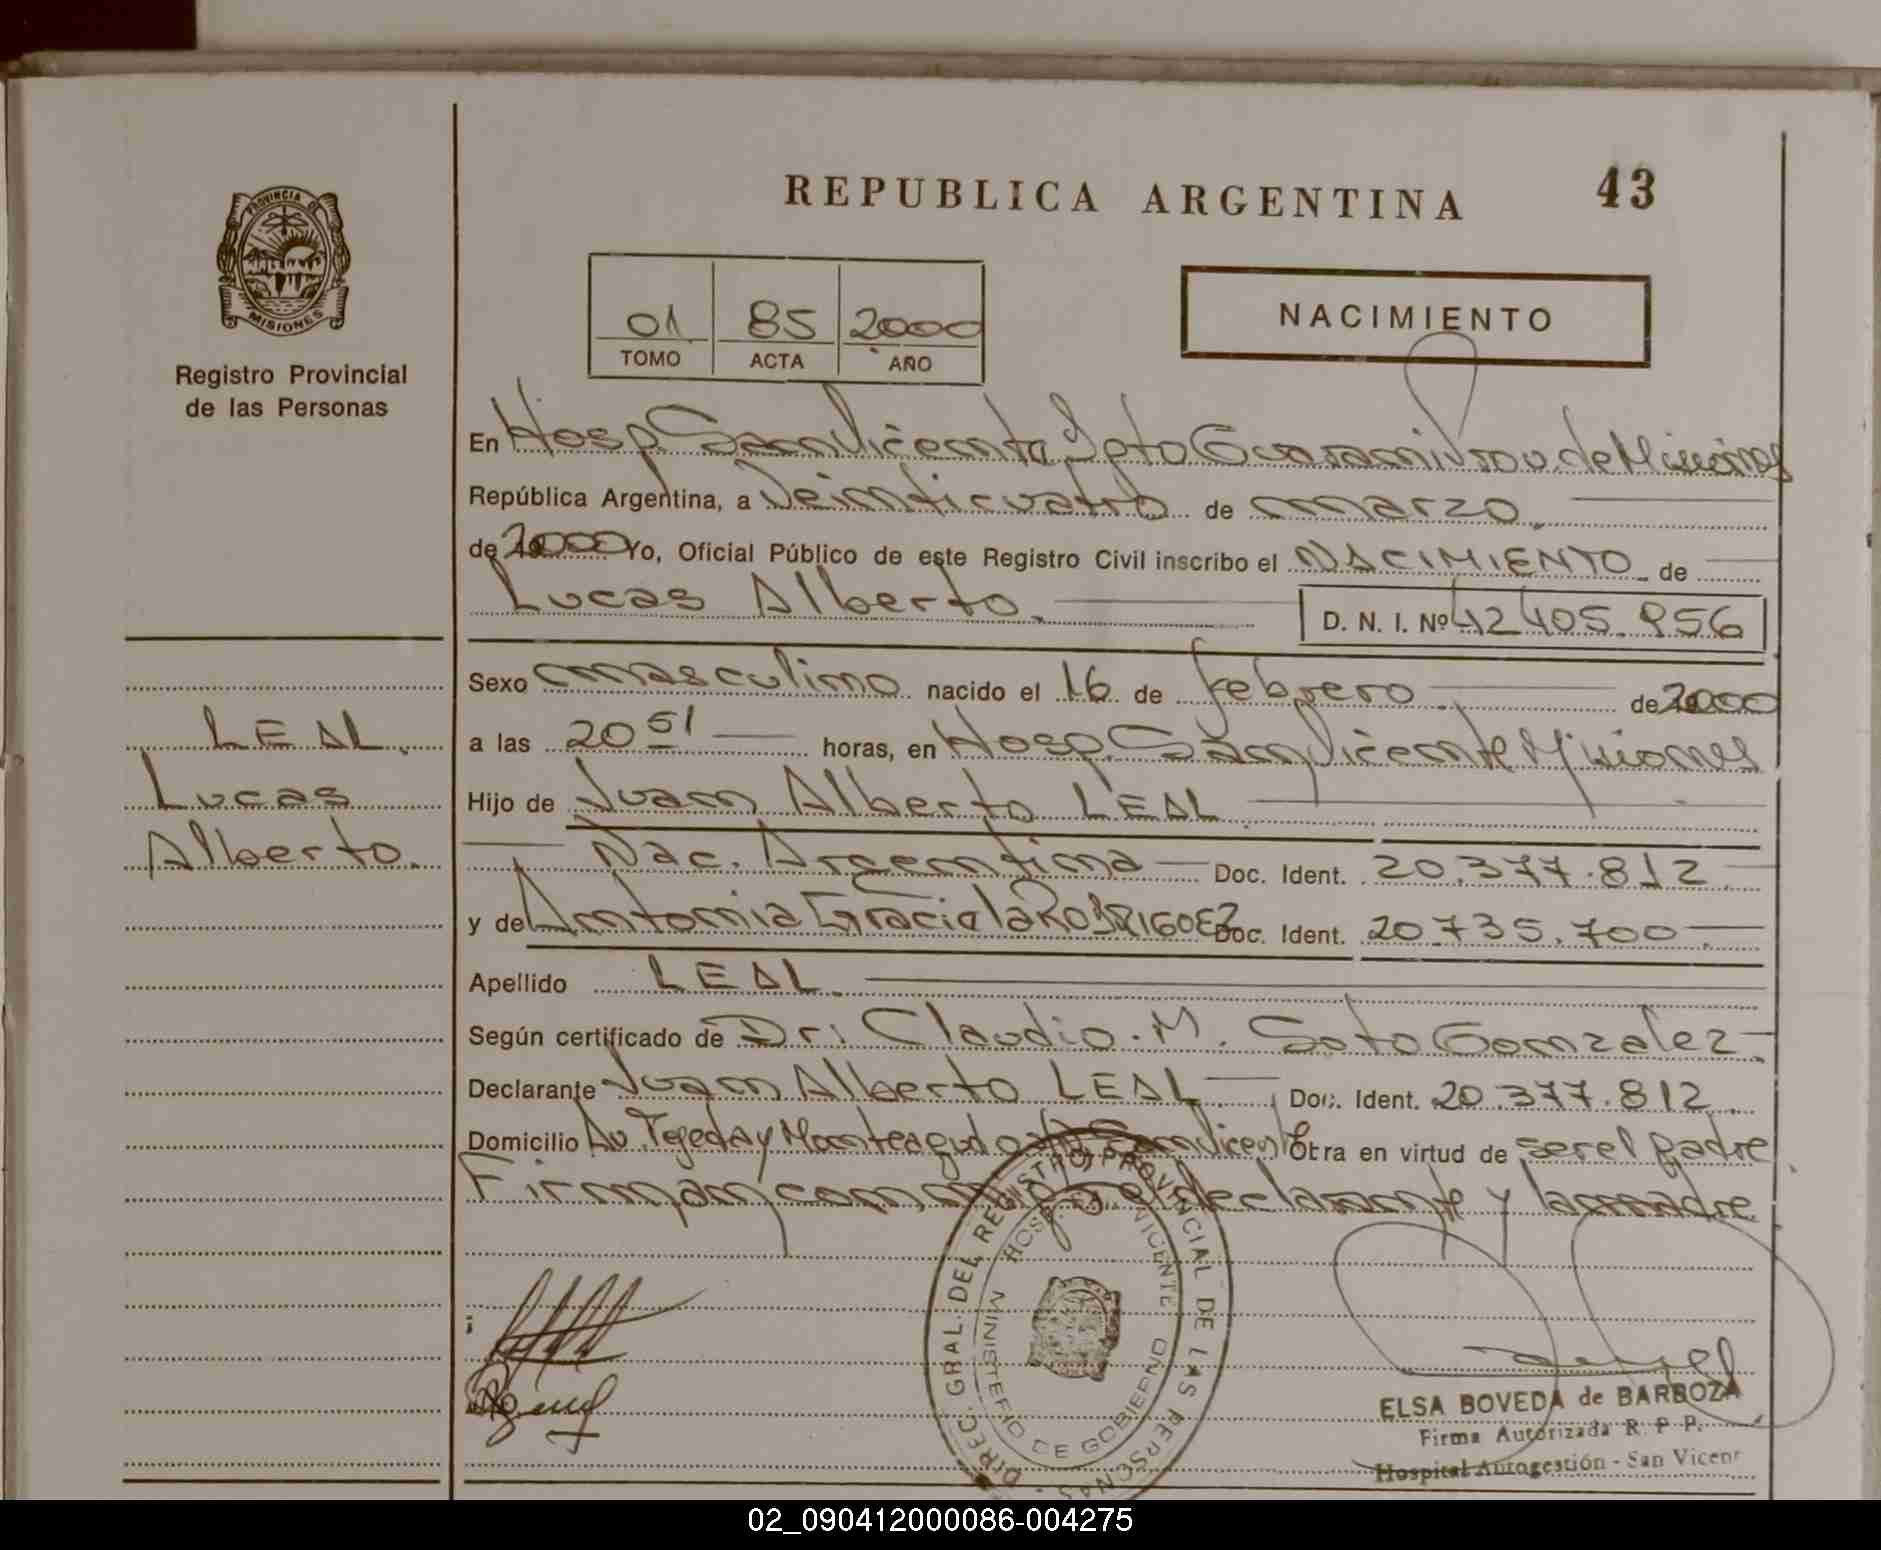 REPUBLICA ARGENTINA 43
PROVINCIA D
MISIONES
Registro Provincial
de las Personas
01 85 2000
TOMO ACTA AÑO
NACIMIENTO
En Hosp San Vicente Dpto Guarani Prov. de Misiones
República Argentina, a Veinticuatro de marzo.
de 2000 Yo, Oficial Público de este Registro Civil inscribo el NACIMIENTO de
Lucas Alberto. D. N. I. Nº 42405.956
Sexo masculino nacido el 16 de febrero de 2000
a las 20 51 horas, en Hosp. San Vicente Misiones
Hijo de Juan Alberto LEAL.
Nac. Argentina Doc. Ident. 20.377.812
y de Antonia Graciela RODRIGUEZ Doc. Ident. 20.735.700
Apellido LEAL.
Según certificado de Dr. Claudio. M. Soto Gonzalez.
Declarante Juan Alberto LEAL Doc. Ident. 20.377.812
Domicilio Av. Tejeda y Monteagudo San Vicente Otra en virtud de ser el padre
Firman conmigo el declarante y la madre
LEAL.
Lucas
Alberto.
DIREC. GRAL. DEL REGISTRO PROVINCIAL DE LAS PERSONAS
HOSP. VICENTE
MINISTERIO DE GOBIERNO
ELSA BOVEDA de BARBOZA
Firma Autorizada R. P. P.
Hospital Autogestión - San Vicent
02_090412000086-004275